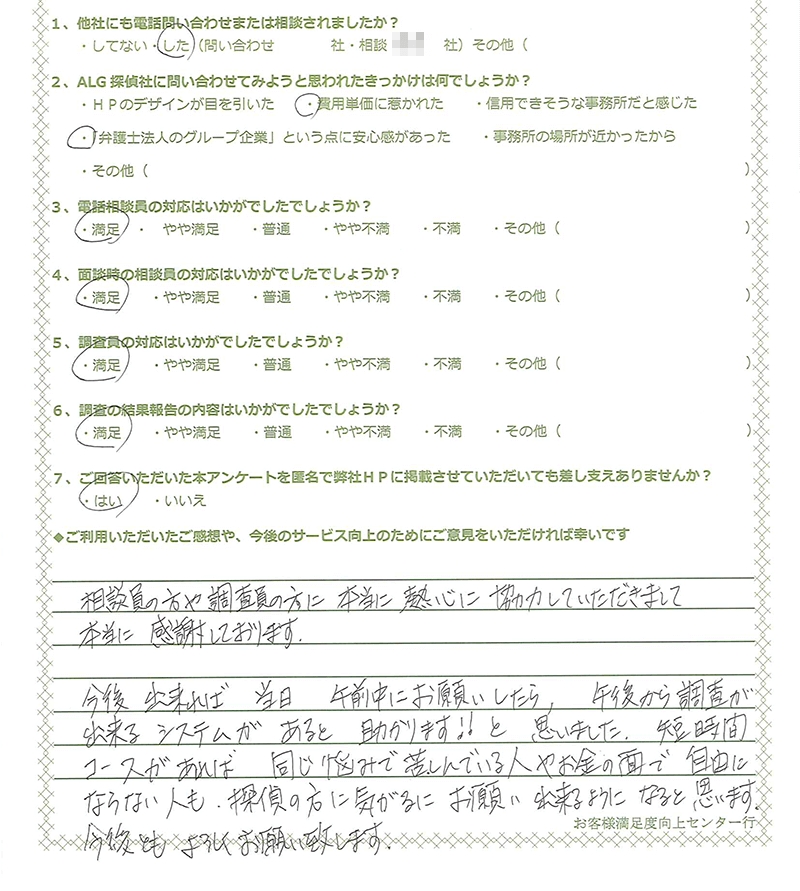 1、他社にも電話問い合わせまたは相談されましたか？
・してない・した（問い合わせ　　　社・相談　　　社）その他（
2、ALG探偵社に問い合わせてみようと思われたきっかけは何でしょうか？
・ＨＰのデザインが目を引いた　・費用単価に惹かれた　・信用できそうな事務所だと感じた
・「弁護士法人のグループ企業」という点に安心感があった　・事務所の場所が近かったから
・その他（　）
3、電話相談員の対応はいかがでしたでしょうか？
・満足　・やや満足　・普通　・やや不満　・不満　・その他（　）
4、面談時の相談員の対応はいかがでしたでしょうか？
・満足　・やや満足　・普通　・やや不満　・不満　・その他（　）
5、調査員の対応はいかがでしたでしょうか？
・満足　・やや満足　・普通　・やや不満　・不満　・その他（　）
6、調査の結果報告の内容はいかがでしたでしょうか？
・満足　・やや満足　・普通　・やや不満　・不満　・その他（　）
7、ご回答いただいた本アンケートを匿名で弊社ＨＰに掲載させていただいても差し支えありませんか？
・はい　・いいえ
◆ご利用いただいたご感想や、今後のサービス向上のためにご意見をいただければ幸いです
相談員の方や調査員の方に 本当に 熱心に 協力していただきまして
本当に 感謝しております.
今後 出来れば 当日 午前中にお願いしたら, 午後から調査が
出来る システムが あると 助かります!! と 思いました. 短時間
コースがあれば 同じ悩みで苦しんでいる人やお金の面で自由に
ならない人も. 探偵の方に気がるに お願い 出来るように なると思います.
お客様満足度向上センター行
今後とも よろしくお願い致します.